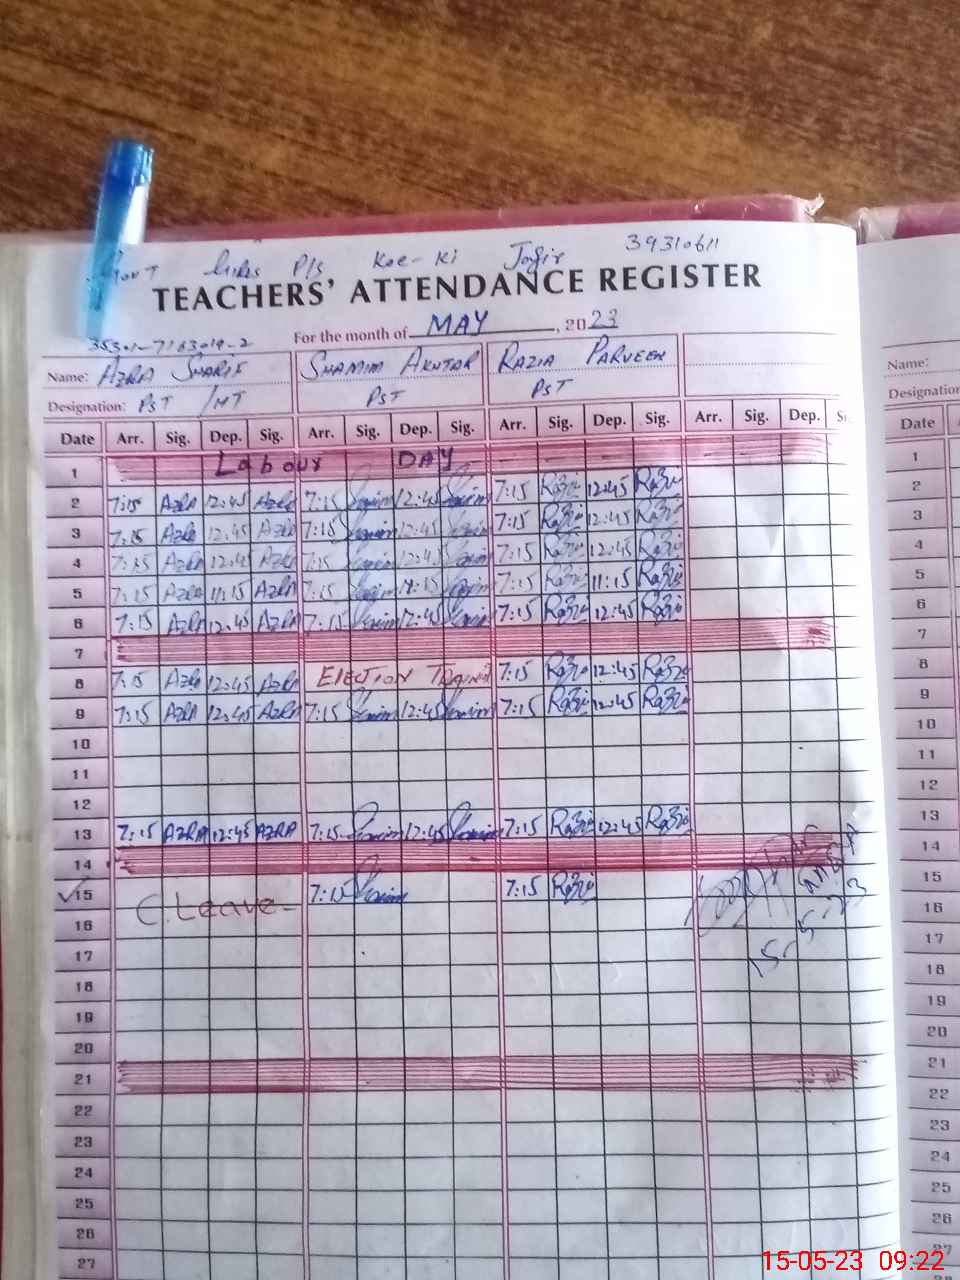 Govt Girls P/S Koe-Ki Jagir 39310611
TEACHERS' ATTENDANCE REGISTER
For the month of MAY, 2023
Name: AZRA SHARIF SHAMIM AKHTAR RAZIA PARVEEN Name:
Designation: PST /HT PST PST Designation
Date Arr. Sig. Dep. Sig. Arr. Sig. Dep. Sig. Arr. Sig. Dep. Sig. Arr. Sig. Dep. Date
1 Labour DAY 1
2 7:15 AZRA 12:45 AZRA 7:15 Shamim 12:45 Shamim 7:15 Razia 12:45 Razia 2
3 7:15 AZRA 12:45 AZRA 7:15 Shamim 12:45 Shamim 7:15 Razia 12:45 Razia 3
4 7:15 AZRA 12:45 AZRA 7:15 Shamim 12:45 Shamim 7:15 Razia 12:45 Razia 4
5 7:15 AZRA 11:15 AZRA 7:15 Shamim 11:15 Shamim 7:15 Razia 11:15 Razia 5
6 7:15 AZRA 12:45 AZRA 7:15 Shamim 12:45 Shamim 7:15 Razia 12:45 Razia 6
7 7
8 7:15 AZRA 12:45 AZRA ELECTION 7:15 Razia 12:45 Razia 8
9 7:15 AZRA 12:45 AZRA 7:15 Shamim 12:45 Shamim 7:15 Razia 12:45 Razia 9
10 10
11 11
12 12
13 7:15 AZRA 12:45 AZRA 7:15 Shamim 12:45 Shamim 7:15 Razia 12:45 Razia 13
14 14
15 C.Leave 7:15 Shamim 7:15 Razia 15
16 15-5-23 16
17 17
18 18
19 19
20 20
21 21
22 22
23 23
24 24
25 25
26 26
27 27
15-05-23 09:22